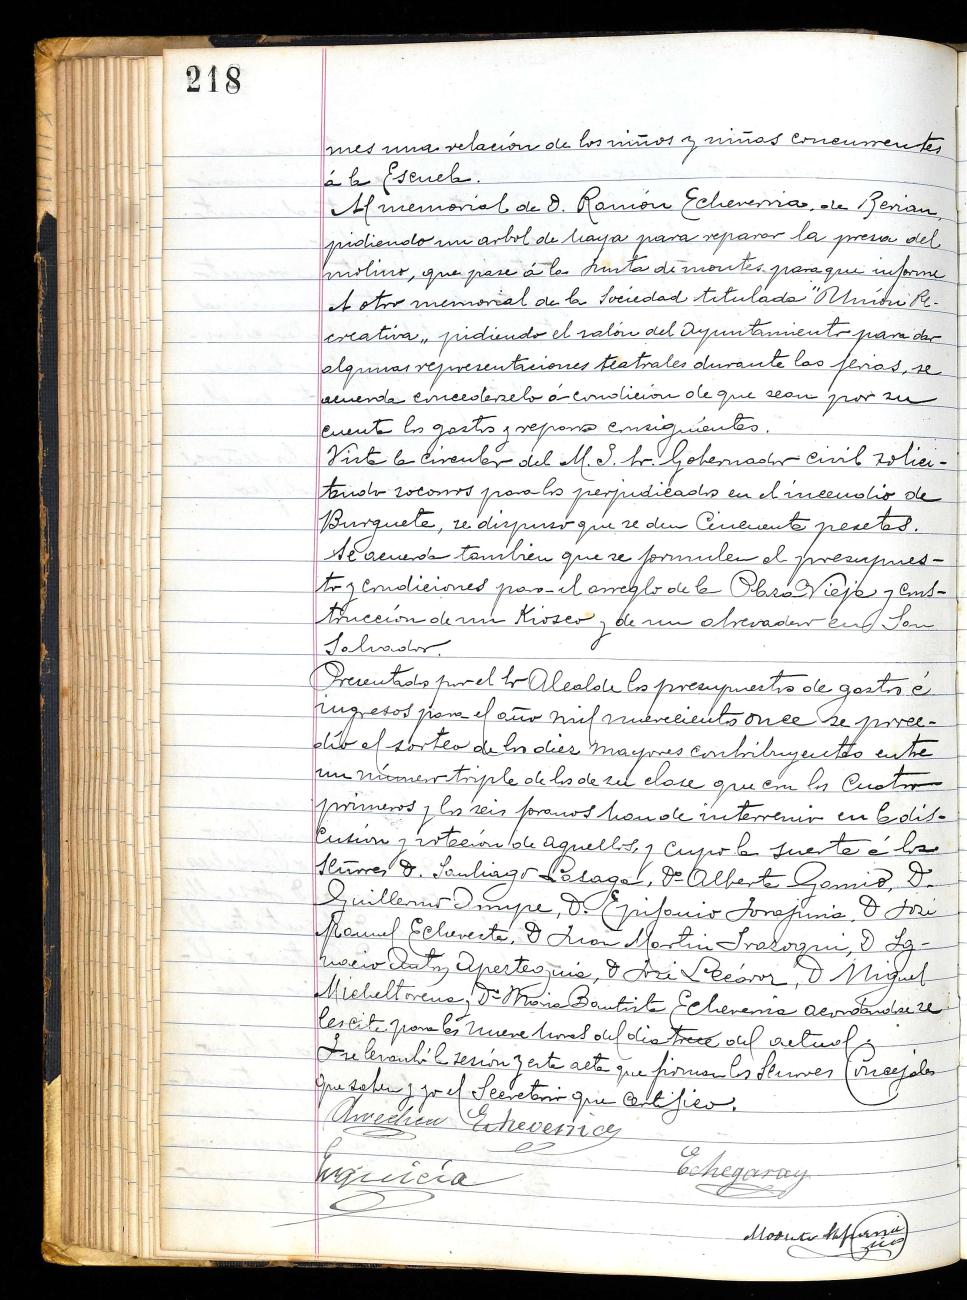 218
mes una relación de los niños y niñas concurrentes
á la Escuela.
Al memorial de D. Ramón Echeverria, de Berian,
pidiendo un arbol de haya para reparar la presa del
molino, que pase á la Junta de montes para que informe
A otro memorial de la Sociedad titulada "Unión Re-
creativa„ pidiendo el salón del Ayuntamiento para dar
algunas representaciones teatrales durante las ferias, se
acuerda concederselo á condición de que sean por su
cuenta los gastos y reparos consiguientes.
Vista la circular del M. I. Sr. Gobernador civil solici-
tando socorros para los perjudicados en el incendio de
Burguete, se dispuso que se den Cincuenta pesetas.
Se acuerda tambien que se formulen el presupues-
to y condiciones para el arreglo de la Plaza Vieja y cons-
trucción de un Kiosco y de un abrevadero en San
Salvador.
Presentados por el Sr Alcalde los presupuestos de gastos é
ingresos para el año mil novecientos once se proce-
dió al sorteo de los diez mayores contribuyentes entre
un número triple de los de su clase que con los cuatro
primeros y los seis foranos han de intervenir en la dis-
cusión y votación de aquellos, y cupo la suerte á los
Señores D. Santiago Lasaga, Dn Alberto Gamio, D.
Guillermo D. Epifanio D José
Manuel Echeveste, D Juan Martin Irazoqui, D Ig-
nacio Apesteguia, D José D Miguel
Micheltorena y Dn Maria Bautista Echeverria acordandose se
les cite para las nueve horas del dia trece del actual.
Y se levantó la sesión y esta acta que firman los Señores Concejales
que saben y yo el Secretario que certifico.
Echeverria
Echegaray